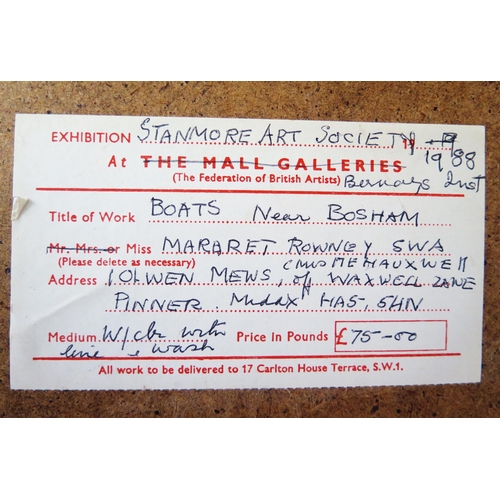 EXHIBITION STANMORE ART SOCIETY 19
At THE MALL GALLERIES 1988
(The Federation of British Artists) Bernays Inst
Title of Work BOATS Near BOSHAM
Mr. Mrs. or Miss MARARET ROWNEY SWA
(Please delete as necessary)
Address 1 OLWEN MEWS, off WAXWELL LANE
PINNER. Middx HA5, 5HN
Medium W/clr with Price in Pounds £75-00
line & wash
All work to be delivered to 17 Carlton House Terrace, S.W.1.